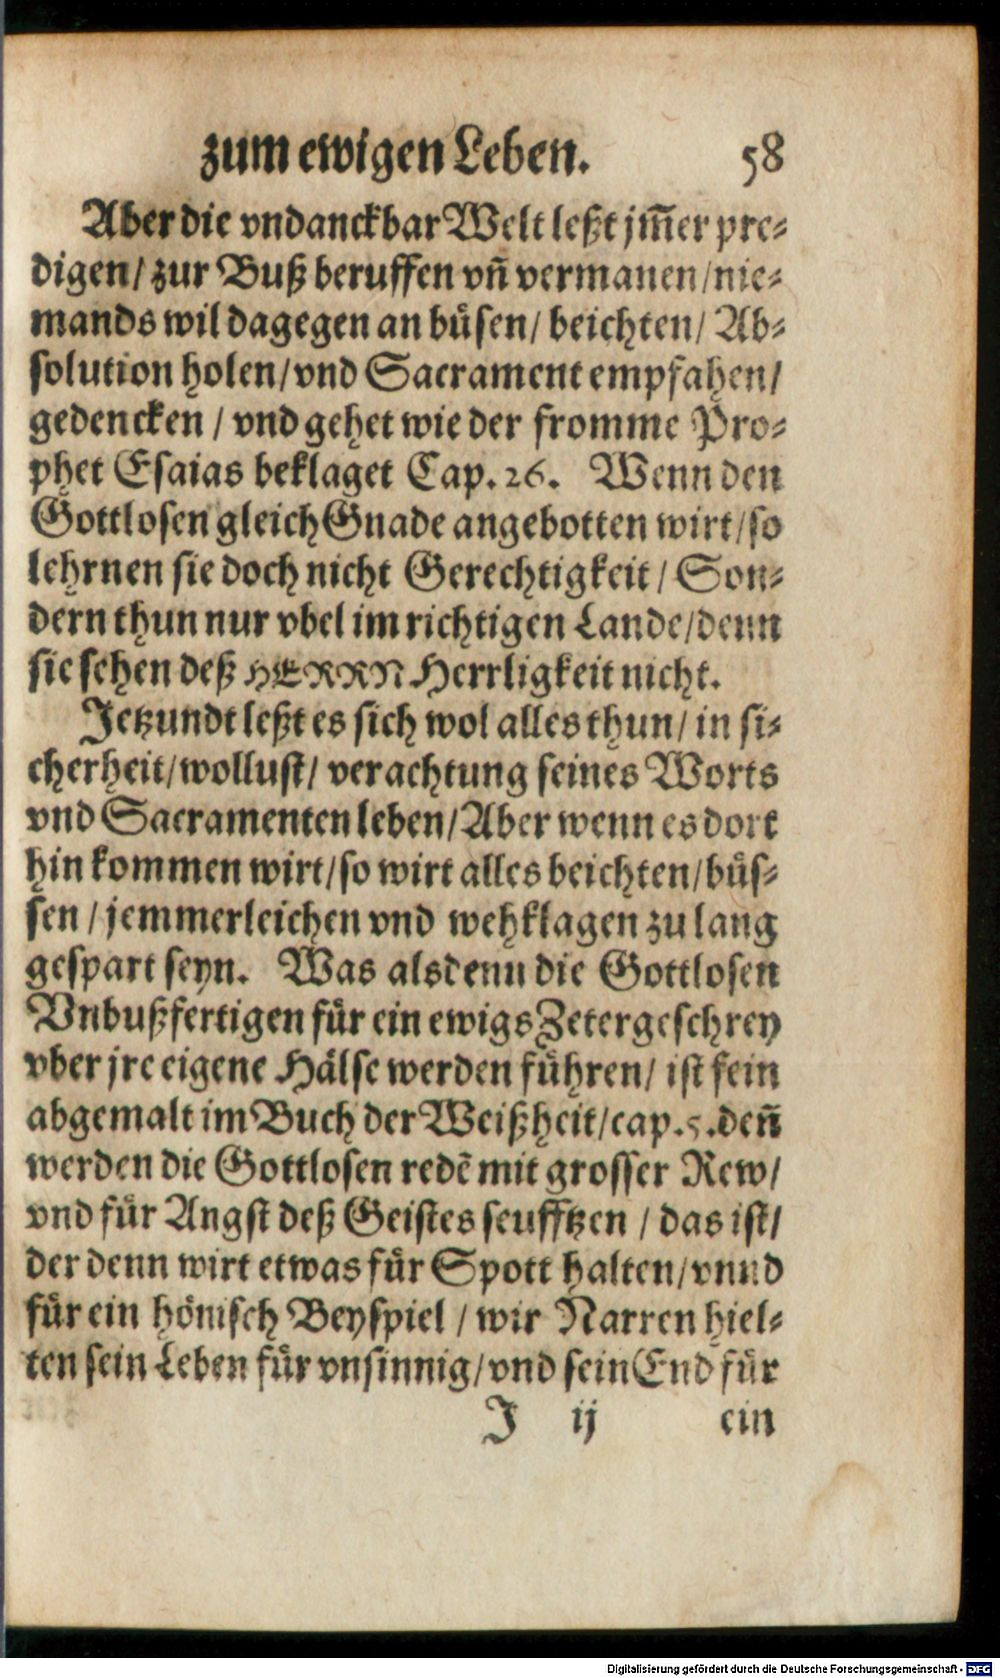 zum ewigen Leben. 58
Aber die vndanckbar Welt leßt jm̃er pre-
digen/ zur Buß beruffen vñ vermanen/ nie-
mands wil dagegen an büsen/ beichten/ Ab-
solution holen/ vnd Sacrament empfahen/
gedencken / vnd gehet wie der fromme Pro-
phet Esaias beklaget Cap. 26. Wenn den
Gottlosen gleich Gnade angebotten wirt/ so
lehrnen sie doch nicht Gerechtigkeit / Son-
dern thun nur vbel im richtigen Lande/ denn
sie sehen deß HERRN Herrligkeit nicht.
Jetzundt leßt es sich wol alles thun/ in si-
cherheit/ wollust/ verachtung seines Worts
vnd Sacramenten leben/ Aber wenn es dort
hin kommen wirt/ so wirt alles beichten/ büs-
sen / jemmerleichen vnd wehklagen zu lang
gespart seyn. Was alsdenn die Gottlosen
Vnbußfertigen für ein ewigs Zetergeschrey
vber jre eigene Hälse werden führen/ ist fein
abgemalt im Buch der Weißheit/ cap. 5. deñ
werden die Gottlosen redẽ mit grosser Rew/
vnd für Angst deß Geistes seufftzen / das ist/
der denn wirt etwas für Spott halten/ vnnd
für ein hönisch Beyspiel / wir Narren hiel-
ten sein Leben für vnsinnig/ vnd sein End für
J ij ein
Digitalisierung gefördert durch die Deutsche Forschungsgemeinschaft - DFG